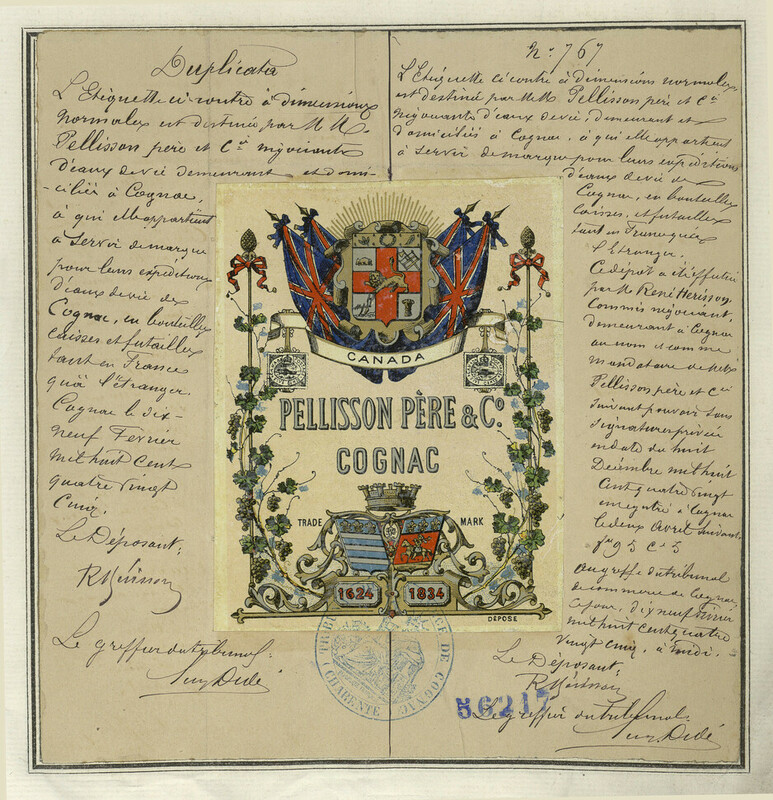 Duplicata
L'Etiquette ci-contre à dimensions
normales est destinée par M M.
Pellisson père et Cie négociants
d'eaux de vie demeurant et domi-
ciliés à Cognac,
à qui elle appartient
à servir de marque
pour leurs expéditions
d'eaux de vie de
Cognac, en bouteilles
caisses et futailles
tant en France
qu'à l'étranger.
Cognac le dix-
neuf Février
mil huit cent
quatre vingt
cinq.
Le Déposant:
R Hérisson
Le greffier du tribunal:
No 767
L'Etiquette ci contre à dimensions normales
est destinée par MM. Pellisson père et Cie
négociants d'eaux de vie, demeurant et
domiciliés à Cognac, à qui elle appartient
à servir de marque pour leurs expéditions
d'eaux de vie de
Cognac, en bouteilles
caisses, et futailles
tant en France qu'à
l'Etranger.
Ce dépôt a été effectué
par M. René Hérisson
Commis négociant,
demeurant à Cognac
au nom et comme
mandataire de MM
Pellisson père et Cie
suivant pouvoir sous
signatures privées
en date du huit
Décembre mil huit
cent quatre vingt
enregistré à Cognac
le deux Avril suivant
au greffe du tribunal
de commerce de Cognac
ce jour, dix neuf Février
mil huit cent quatre
vingt cinq, à midi.
Le Déposant:
R Hérisson
Le greffier du tribunal.
CANADA
PELLISSON PÈRE & Co.
COGNAC
TRADE MARK
1624 1834
DÉPOSÉ
DE COGNAC
(CHARENTE)
56217